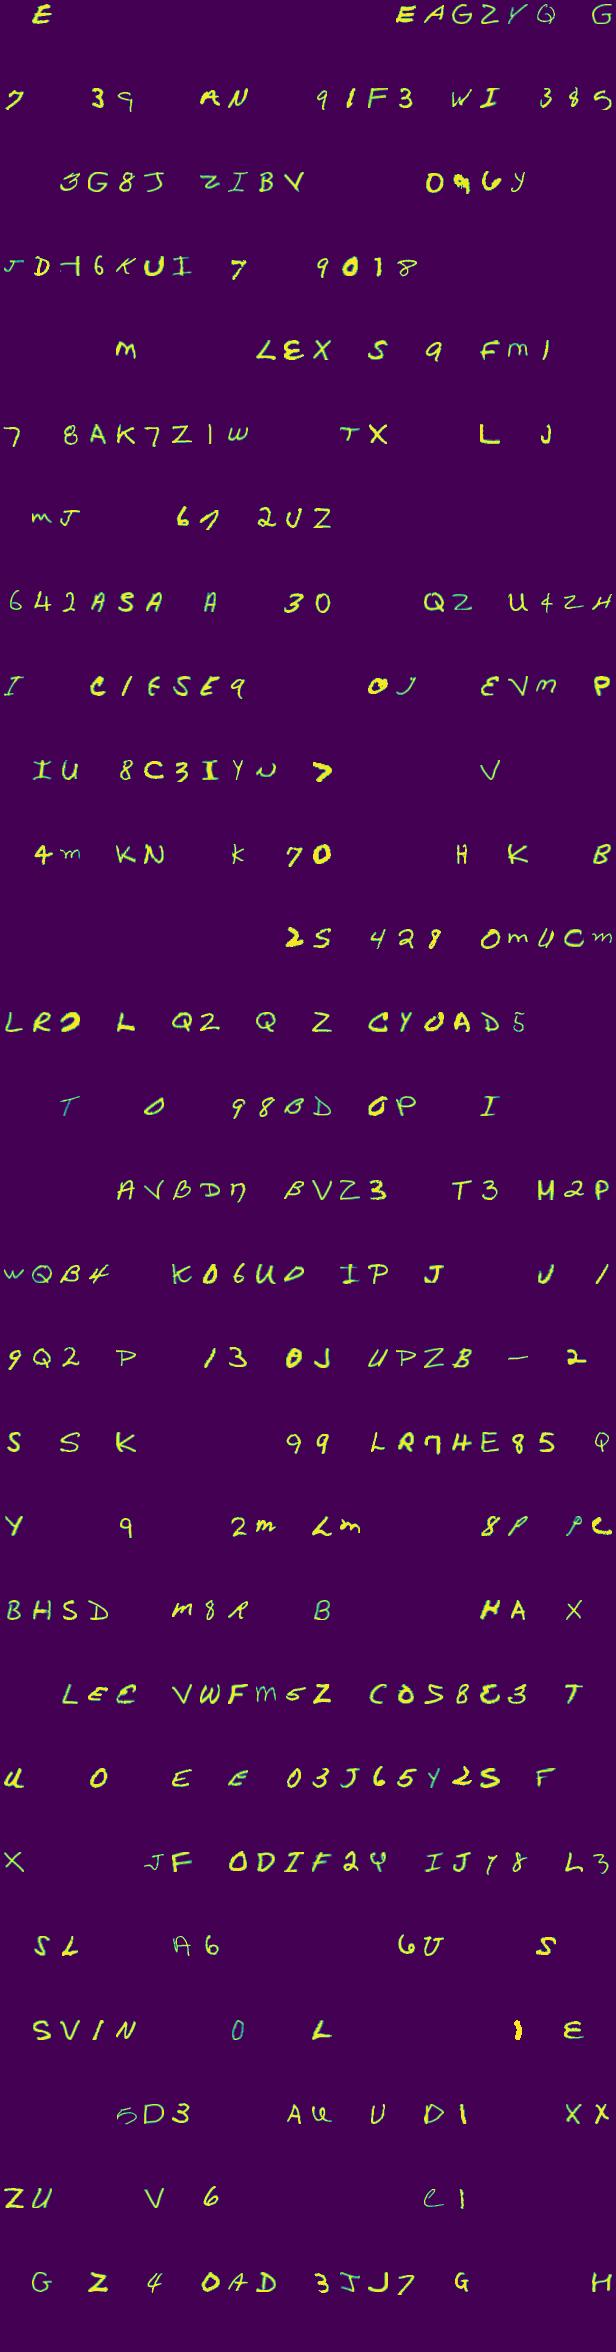 E EAGZYQ G
7 39 AN 91F3 WI 385
3G8J ZIBV 096Y
JDH6KUI 7 9018
M LEX S 9 FM1
7 8AK7Z1W TX L J
MJ 67 2UZ
642ASA A 30 QZ U4ZH
I C1ESE9 0J EVM P
IU 8C3IYN 7 V
4M KN K 70 H K B
2S 428 0MUCM
LR0 L Q2 Q Z CY0AD5
T 0 98BD 0P I
AVBD7 BVZ3 T3 M2P
WQB4 K06UD IP J J 1
9Q2 P 13 0J UPZB - 2
S S K 99 LR7HE85 Q
Y 9 2M LM 8P PC
BHSD M8R B HA X
LEE VWFM5Z C0S8E3 T
U 0 E E 03J65Y2S F
X JF 0DIF24 IJ78 L3
SL A6 6U S
SVIN 0 L 1 E
5D3 AQ U D1 XX
ZU V 6 C1
G Z 4 0AD 3JJ7 G H